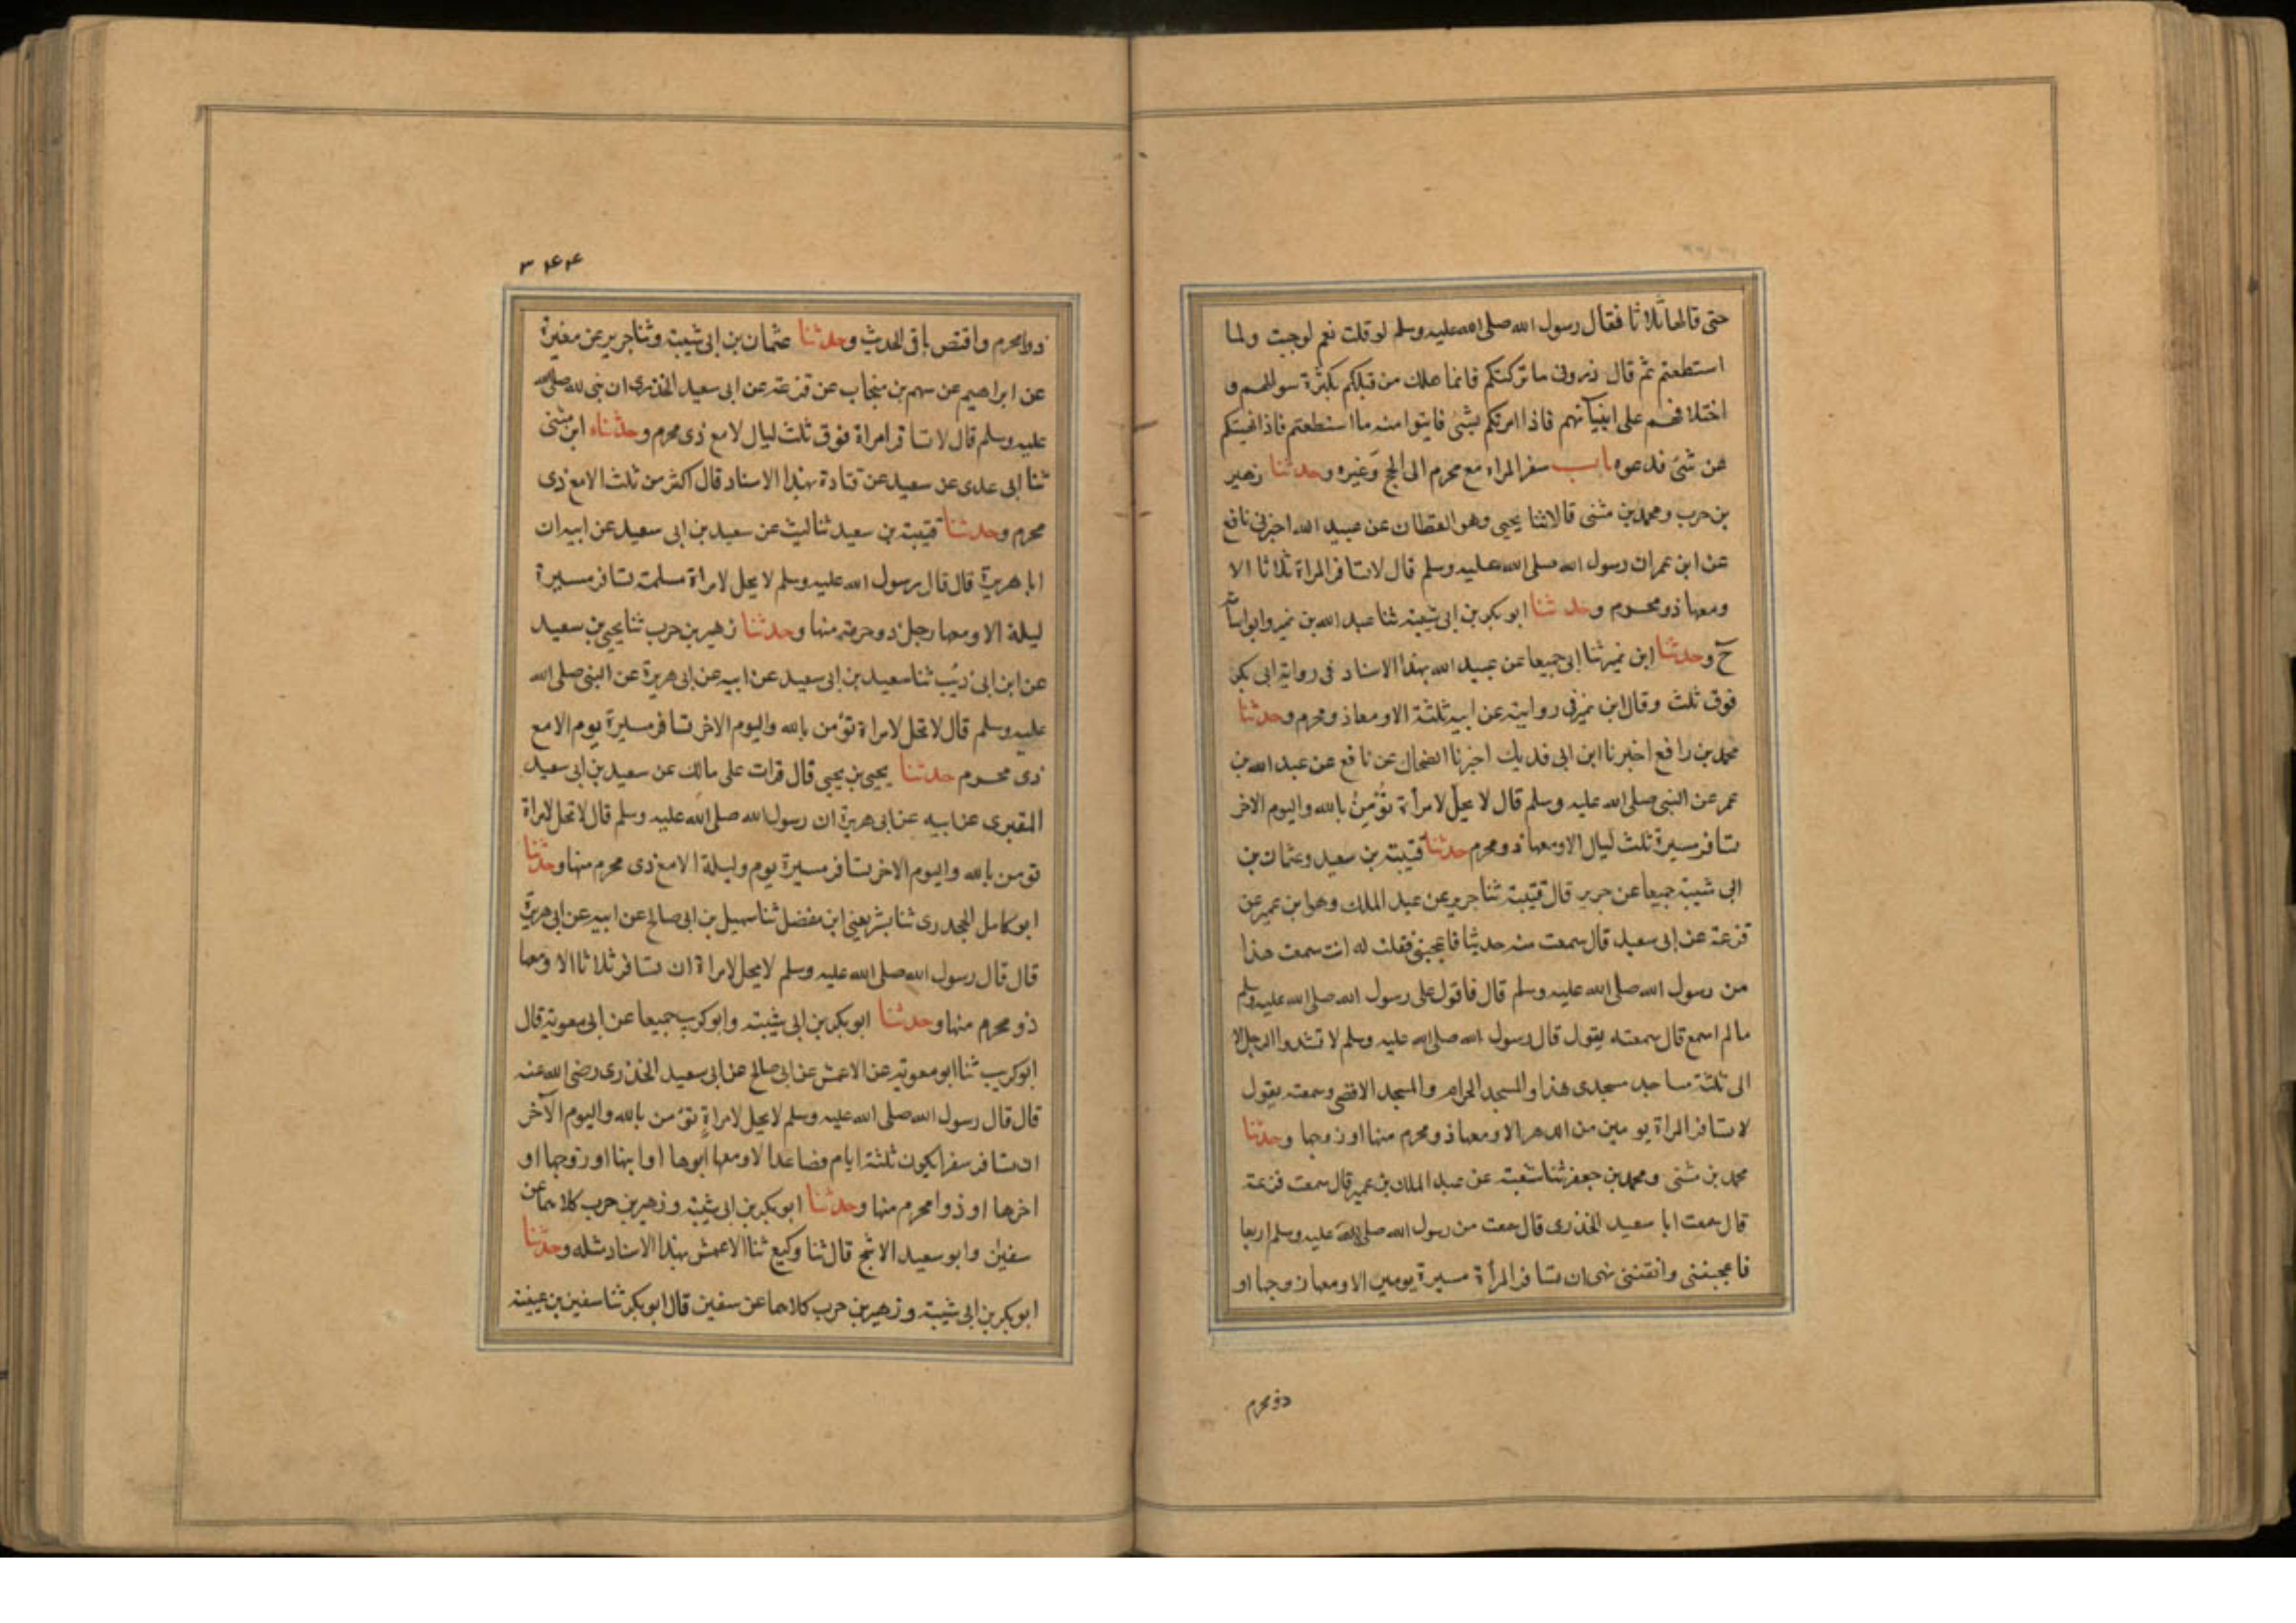 حتى قالها ثلاثا فقال رسول الله صلى الله عليه وسلم لو قلت نعم لوجبت ولما
استطعتم ثم قال ذروني ما تركتكم فانما هلك من قبلكم بكثرة سوالهم و
اختلافهم على انبيآئهم فاذا امرتكم بشئ فايتوا منه ما استطعتم فاذا نهيتكم
عن شئ فدعوه باب سفر المراه مع محرم الى الحج وغيره وحدثنا زهير
بن حرب ومحمد بن مثنى قالا ثنا يحيى وهو القطان عن عبيد الله اخبرني نافع
عن ابن عمر ان رسول الله صلى الله عليه وسلم قال لا تسافر المراة ثلاثا الا
ومعها ذو محرم وحدثنا ابو بكر بن ابي شيبة ثنا عبد الله بن نمير وابو اسآمة
ح وحدثنا ابن نمير ثنا ابي جميعا عن عبيد الله بهذا الاسناد في رواية ابي بكر
فوق ثلث وقال ابن نمير في روايته عن ابيه ثلثة الا ومعها ذو محرم وحدثنا
محمد بن رافع اخبرنا ابن ابي فديك اخبرنا الضحاك عن نافع عن عبد الله بن
عمر عن النبي صلى الله عليه وسلم قال لا يحل لامرأة تؤمن بالله واليوم الاخر
تسافر مسيرة ثلث ليال الا ومعها ذو محرم حدثنا قتيبة بن سعيد وعثمان بن
ابي شيبة جميعا عن جرير قال قتيبة ثنا جرير عن عبد الملك وهو ابن عمير عن
قزعة عن ابي سعيد قال سمعت منه حديثا فاعجبني فقلت له انت سمعت هذا
من رسول الله صلى الله عليه وسلم قال فاقول على رسول الله صلى الله عليه وسلم
مالم اسمع قال سمعته يقول قال رسول الله صلى الله عليه وسلم لا تشدوا الرحل الا
الى ثلثة مساجد مسجدى هذا والمسجد الحرام والمسجد الاقصى وسمعته يقول
لا تسافر المراة يومين من الدهر الا ومعها ذو محرم منها او زوجها وحدثنا
محمد بن مثنى ومحمد بن جعفر ثنا شعبة عن عبد الملك بن عمير قال سمعت قزعة
قال سمعت ابا سعيد الخذرى قال سمعت من رسول الله صلى الله عليه وسلم اربعا
فاعجبننى وانقننى نهى ان تسافر المرأة مسيرة يومين الا ومعها زوجها او
ذو محرم
٣٤٤
ذو امحرم واقتص باقى الحديث وحدثنا عثمان بن ابي شيبة وثنا جرير عن مغيرة
عن ابراهيم عن سهم بن منجاب عن قزعة عن ابي سعيد الخذرى ان نبى الله صلى الله
عليه وسلم قال لا تسافر امراة فوق ثلث ليال لا مع ذى محرم وحدثناه ابن مثنى
ثنا ابي عدى عن سعيد عن قتادة بهذا الاسناد قال اكثر من ثلث الا مع ذى
محرم وحدثنا قتيبة بن سعيد ثنا ليث عن سعيد بن ابي سعيد عن ابيه ان
ابا هريرة قال قال رسول الله عليه وسلم لا يحل لامراة مسلمة تسافر مسيرة
ليلة الا ومعها رجل ذو حرمة منها وحدثنا زهير بن حرب ثنا يحيى بن سعيد
عن ابن ابي ذيب ثنا سعيد بن ابي سعيد عن ابيه عن ابي هريرة عن النبي صلى الله
عليه وسلم قال لا تحل لامراة تؤمن بالله واليوم الاخر تسافر مسيرة يوم الا مع
ذى محرم حدثنا يحيى بن يحيى قال قرات على مالك عن سعيد بن ابي سعيد
المقبرى عن ابيه عن ابي هريرة ان رسول الله صلى الله عليه وسلم قال لا تحل لامراة
تومن بالله واليوم الاخر تسافر مسيرة يوم وليلة الا مع ذى محرم منها وحدثنا
ابو كامل الجحدرى ثنا بشر يعنى ابن مفضل ثنا سهيل بن ابي صالح عن ابيه عن ابي هريرة
قال قال رسول الله صلى الله عليه وسلم لا يحل لامراة ان تسافر ثلاثا الا ومعها
ذو محرم منها وحدثنا ابو بكر بن ابي شيبة وابو كريب جميعا عن ابي معوية قال
ابو كريب ثنا ابو معوية عن الاعمش عن ابي صالح عن ابي سعيد الخذرى رضى الله عنه
قال قال رسول الله صلى الله عليه وسلم لا يحل لامراة تؤمن بالله واليوم الآخر
ان تسافر سفرا يكون ثلثة ايام فصاعدا الا ومعها ابوها او ابنها او زوجها او
اخوها او ذو امحرم منها وحدثنا ابو بكر بن ابي شيبة وزهير بن حرب كلاهما عن
سفين وابو سعيد الاشج قال ثنا وكيع ثنا الاعمش بهذا الاسناد مثله وحدثنا
ابو بكر بن ابي شيبة وزهير بن حرب كلاهما عن سفين قال ابو بكر ثنا سفين بن عيينة